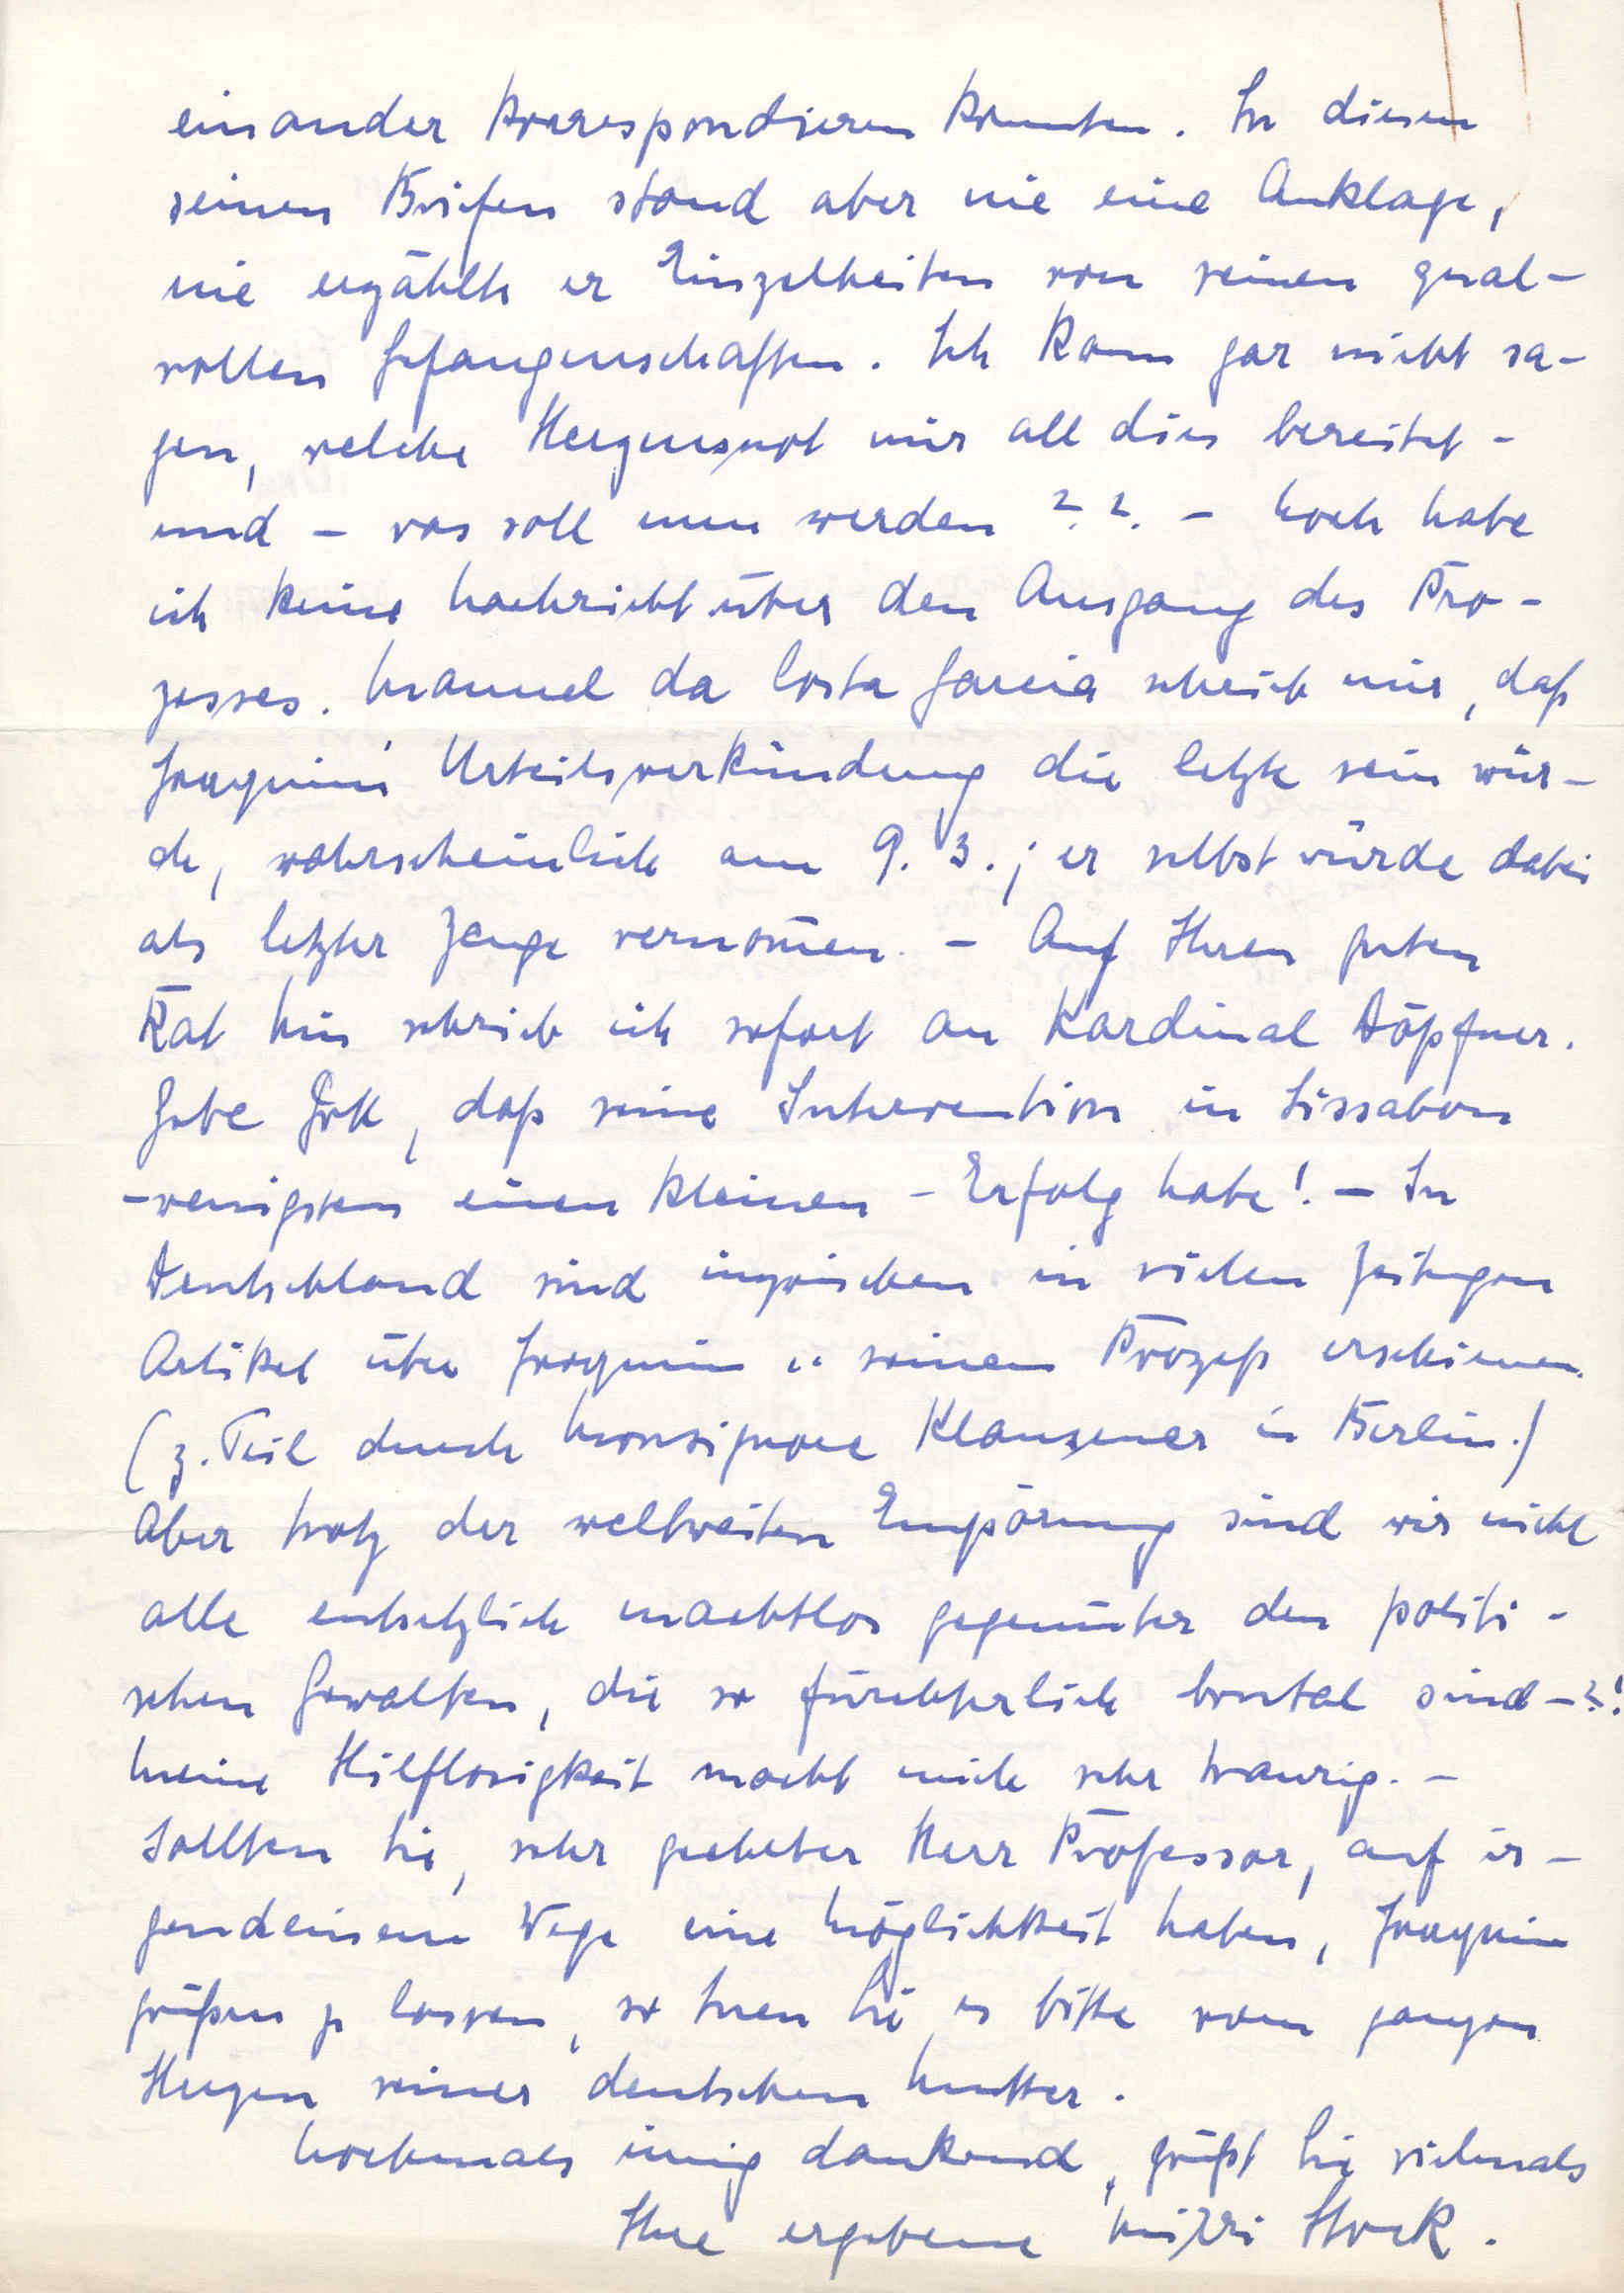 einander korrespondieren konnten. In diesen
seinen Briefen stand aber nie eine Anklage,
nie erzählte er Einzelheiten von seinen qual-
vollen Gefangenschaften. Ich kann gar nicht sa-
gen, welche Herzensnot mir all dies bereitet -
und - was soll nun werden ?? - Noch habe
ich keine Nachricht über den Ausgang des Pro-
zesses. Manuel da Costa Garcia schrieb mir, daß
Joaquims Urteilsverkündung die letzte sein wür-
de, wahrscheinlich am 9. 3.; er selbst würde dabei
als letzter Zeuge vernom̄en. - Auf Ihren guten
Rat hin schrieb ich sofort an Kardinal Döpfner.
Gebe Gott, daß seine Intervention in Lissabon
- wenigstens einen kleinen - Erfolg habe! - In
Deutschland sind inzwischen in vielen Zeitungen
Artikel über Joaquim u. seinen Prozeß erschienen.
(z. Teil durch Monsignore Klausener in Berlin.)
Aber trotz der weltweiten Empörung sind wir nicht
alle entsetzlich machtlos gegenüber den politi-
schen Gewalten, die so fürchterlich brutal sind -?!
Meine Hilflosigkeit macht mich sehr traurig. -
Sollten Sie, sehr geehrter Herr Professor, auf ir-
gendeinem Wege eine Möglichkeit haben, Joaquim
grüßen zu lassen, so tuen Sie es bitte vom ganzen
Herzen seiner deutschen Mutter.
Nochmals innig dankend, grüßt Sie vielmals
Ihre ergebene Mizzi Stock.